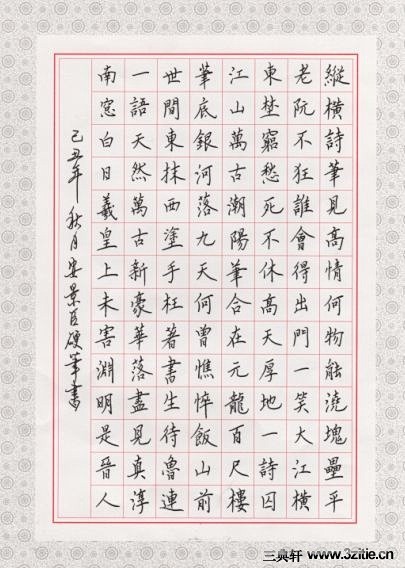 縱橫詩筆見高情何物能澆塊壘平
老阮不狂誰會得出門一笑大江橫
東埜窮愁死不休高天厚地一詩囚
江山萬古潮陽筆合在元龍百尺樓
筆底銀河落九天何曾憔悴飯山前
世間東抹西塗手枉著書生待魯連
一語天然萬古新豪華落盡見真淳
南窓白日羲皇上未害淵明是晉人
己丑年秋月安景臣硬筆書
三典轩 www.3zitie.cn